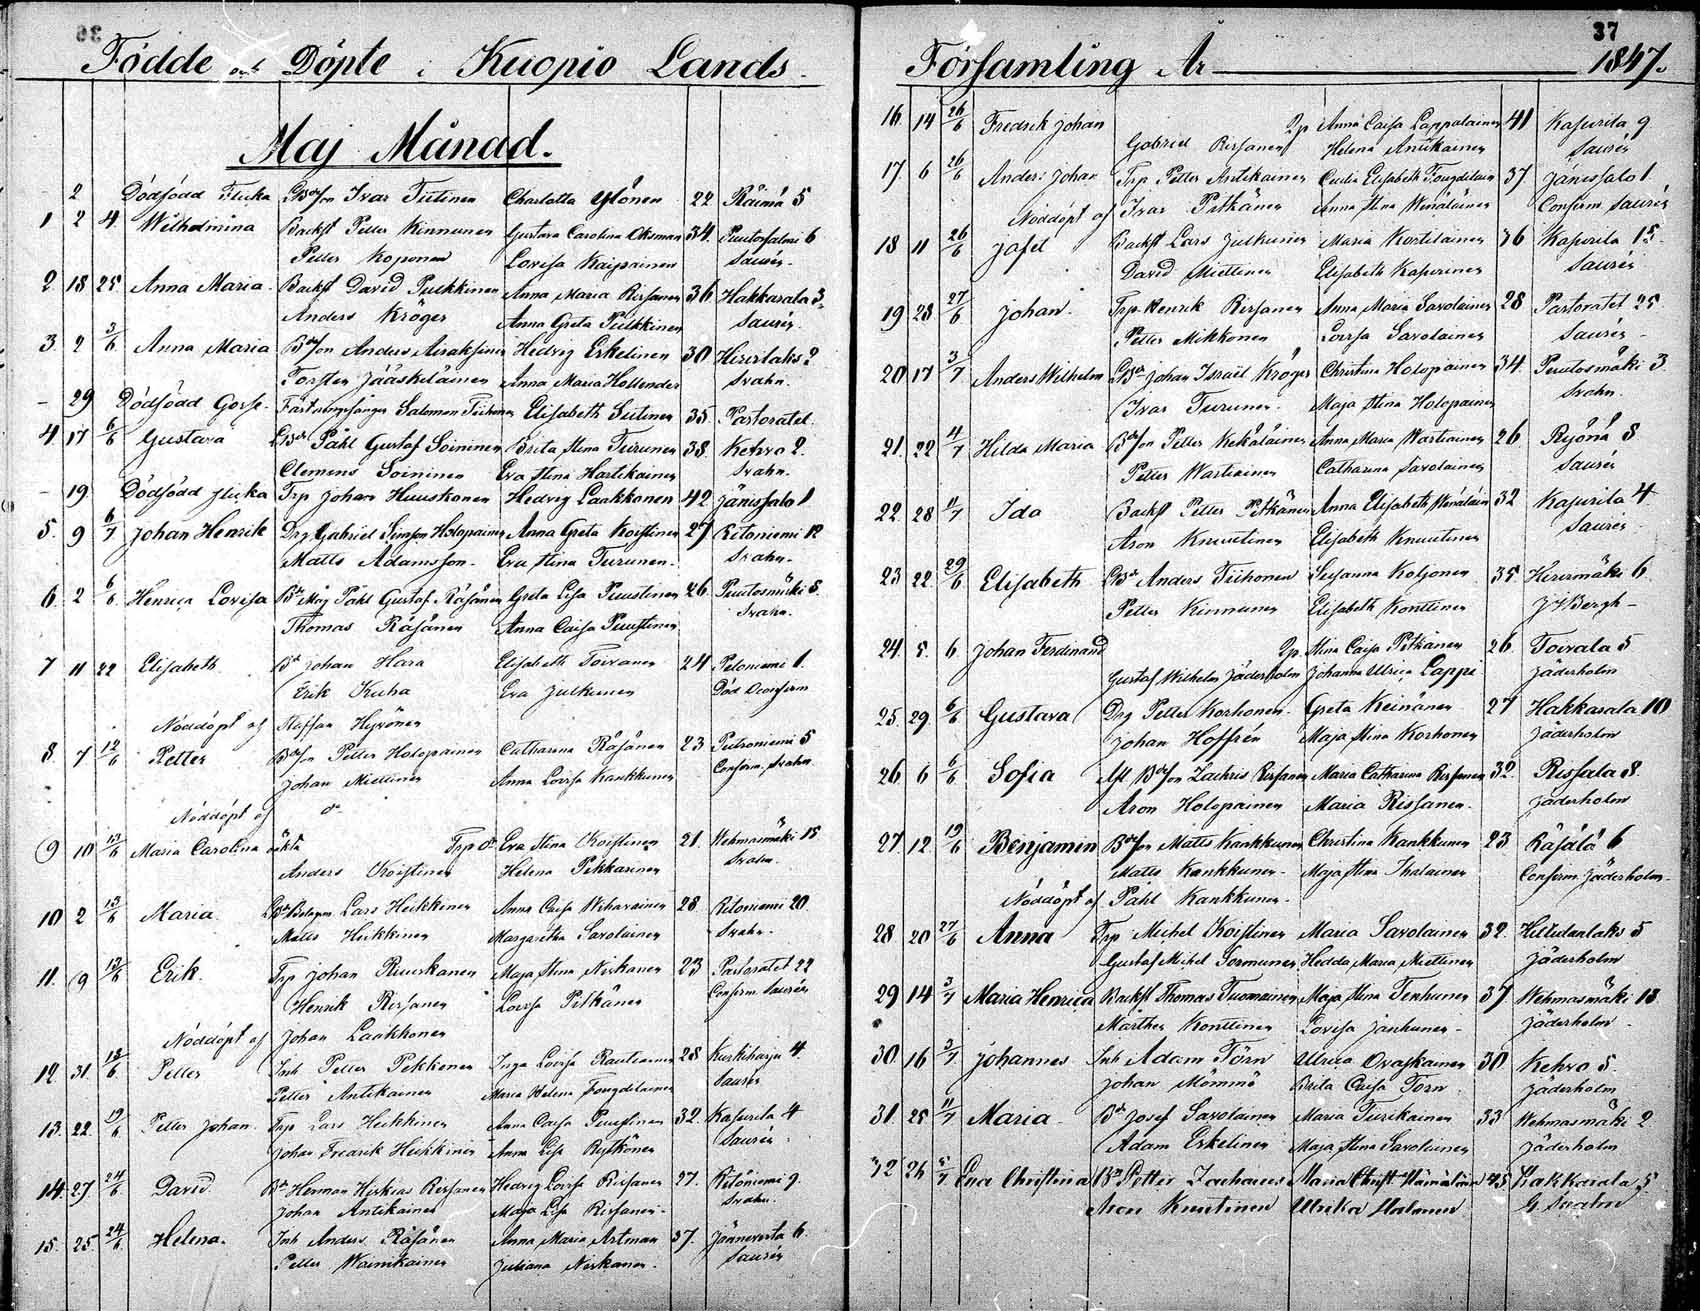 36
Födde och Döpte i Kuopio Lands
Maj Månad.
2 Dödfödd Flicka Bdeson Ivar Tiitinen Charlotta Ylönen 22 Räimä 5
1 2 4. Wilhelmina Backst Petter Kinnunen Gustava Carolina Oksman 34. Puutosalmi 6
Petter Koponen Lovisa Kaipainen Saurén.
2. 18 25 Anna Maria. Backst David Pulkkinen Anna Maria Rissanen 36. Hakkarala 3.
Anders Kröger Anna Greta Pulkkinen Saurén.
3. 2 3/6 Anna Maria Bdeson Anders Airaksinen Hedvig Eskelinen 30 Hirvilaks 2
Torsten Jääskeläinen Anna Maria Hollender Svahn.
- 29 Dödfödd Gosse. Salomon Tiihonen Elisabeth Sutinen 35. Pastoratet.
4. 17 6/6 Gustava Påhl Gustaf Soininen Brita Stina Turunen 38. Kehvo 2.
Clemens Soininen Eva Stina Hartikainen Svahn.
- 19. Dödfödd flicka Trp Johan Huuskonen Hedvig Laakkonen 42 Jänissalo 1
5. 9 6/7 Johan Henrik Drg Gabriel Simson Holopainen Anna Greta Koistinen 27 Ritoniemi 12
Matts Adamsson. Eva Stina Turunen. Svahn.
6. 2 6/6 Henrica Lovisa Påhl Gustaf Räsänen Greta Lisa Puustinen 26. Puutosmäki 8.
Thomas Räsänen Anna Caisa Puustinen Svahn.
7 11 22 Elisabeth Bd Johan Hara Elisabeth Toivanen 24 Peloniemi 1.
Erik Kuha Eva Julkunen
Nöddöpt af Staffan Hyvönen
8. 7 12/6 Petter Bdeson Petter Holopainen Catharina Räsänen 23 Putroniemi 5
Johan Miettinen Anna Lovisa Kankkunen Confirm. Svahn
Nöddöpt af do
9 10 13/6 Maria Carolina oäkta Trp dr Eva Stina Koistinen 21. Wehmasmäki 15
Anders Koistinen Helena Pekkarinen Svahn.
10 2 13/6 Maria. Lars Heikkinen Anna Caisa Wihavainen 28 Ritoniemi 20.
Matts Heikkinen Margaretha Savolainen Svahn.
11. 9 13/6 Erik. Trp Johan Ruuskanen Maja Stina Niskanen 23 Pastoratet 22
Henrik Rissanen Lovisa Pitkänen Confirm. Saurén
Nöddöpt af Johan Laakkonen
12. 31. 13/6 Petter Inh Petter Pekkonen Inga Lovisa Rautiainen 28 Kurkiharju 4.
Petter Antikainen Maria Helena Tougdelainen Saurén
13. 22. 19/6 Petter Johan. Trp Lars Heikkinen Anna Caisa Puustinen 32. Kasurila 4
Johan Fredrik Heikkinen Anna Lisa Rytkönen Saurén.
14. 27 24/6 David. Bd Herman Hiskias Rissanen Hedvig Lovisa Rissanen 27. Ritoniemi 9.
Johan Antikainen Maja Lisa Rissanen. Svahn.
15. 25. 24/6 Helena. Inh Anders Räsänen Anna Maria Artman 37. Jännevirta 6.
Petter Wainikainen Juliana Niskanen. Saurén
37
Församling År 1847.
16. 14 26/6 Fredrik Johan Pp Anna Caisa Lappalainen 41 Kasurila 9
Gabriel Rissanen Helena Antikainen Saurén
17 6 26/6 Anders Johan Trp Petter Antikainen Cecilia Elisabeth Tougdelain 37 Jänissalo 1.
Nöddöpt af Ivar Pitkänen Anna Stina Wenäläinen Confirm Saurén
18 11 26/6 Jafet Backst Lars Julkunen Maria Kortelainen 36 Kasurila 15.
David Miettinen Elisabeth Kasurinen Saurén
19 28 27/6 Johan. Trp Henrik Rissanen Anna Maria Savolainen 28 Pastoratet 25
Petter Mikkonen Lovisa Savolainen Saurén
20 17 3/7 Anders Wilhelm Johan Israël Kröger Christina Holopainen 34 Puutosmäki 3.
Ivar Turunen. Maja Stina Holopainen Svahn.
21. 22 4/7 Hilda Maria Bdeson Petter Kekäläinen Anna Maria Wartiainen 26. Ryönä 8
Petter Wartiainen Catharina Savolainen Saurén
22. 28 11/7 Ida Backst Petter Pitkänen Anna Elisabeth Wenäläin 32 Kasurila 4
Aron Knuutinen Elisabeth Knuutinen Saurén
23 22. 29/6 Elisabeth Anders Tiihonen Susanna Koljonen 35 Hirvimäki 6
Petter Kinnunen Elisabeth Konttinen J J Bergh
24. 5. 6. Johan Ferdinand Pp. Stina Caisa Pitkänen 26. Toivala 5
Gustaf Wilhelm Jäderholm Johanna Ulrica Lappi Jäderholm
25. 29. 6/6 Gustava Drg Petter Korhonen Greta Keinänen 27 Hakkarala 10
Johan Hoffrén Maja Stina Korhonen Jäderholm
26. 6 6/6 Sofia Afl Bdeson Zachris Rissanen Maria Catharina Rissanen 32. Rissala 8.
Aron Holopainen Maria Rissanen. Jäderholm
27 12. 19/6 Benjamin Bdeson Matts Kankkunen Christina Kankkunen 23 Räsälä 6
Matts Kankkunen. Maja Stina Ihalainen Confirm. Jäderholm
Nöddöpt af Påhl Kankkunen.
28. 20 27/6 Anna Trp Michel Koistinen Maria Savolainen 32. Hiltulanlaks 5
Gustaf Michel Sormunen Hedda Maria Miettinen Jäderholm
29 14 3/7 Maria Henrica Backst Thomas Tuomainen Maja Stina Tenhunen 37 Wehmasmäki 13.
Mårthen Konttinen Lovisa Janhunen. Jäderholm
30. 16 3/7 Johannes Inh Adam Törn Ulrica Ovaskainen 30 Kehvo 5.
Johan Mömmö Brita Caisa Törn Jäderholm
31. 25 11/7 Maria. Bd Josef Savolainen Maria Turikainen 33 Wehmasmäki 2
Adam Eskelinen Maja Stina Savolainen Jäderholm
32 26 5/7 Eva Christina Bd Petter Zacharias Maria Christ. Hämäläin 45 Kakkarala 5
Aron Knuutinen Ulrika Halonen G. Svahn